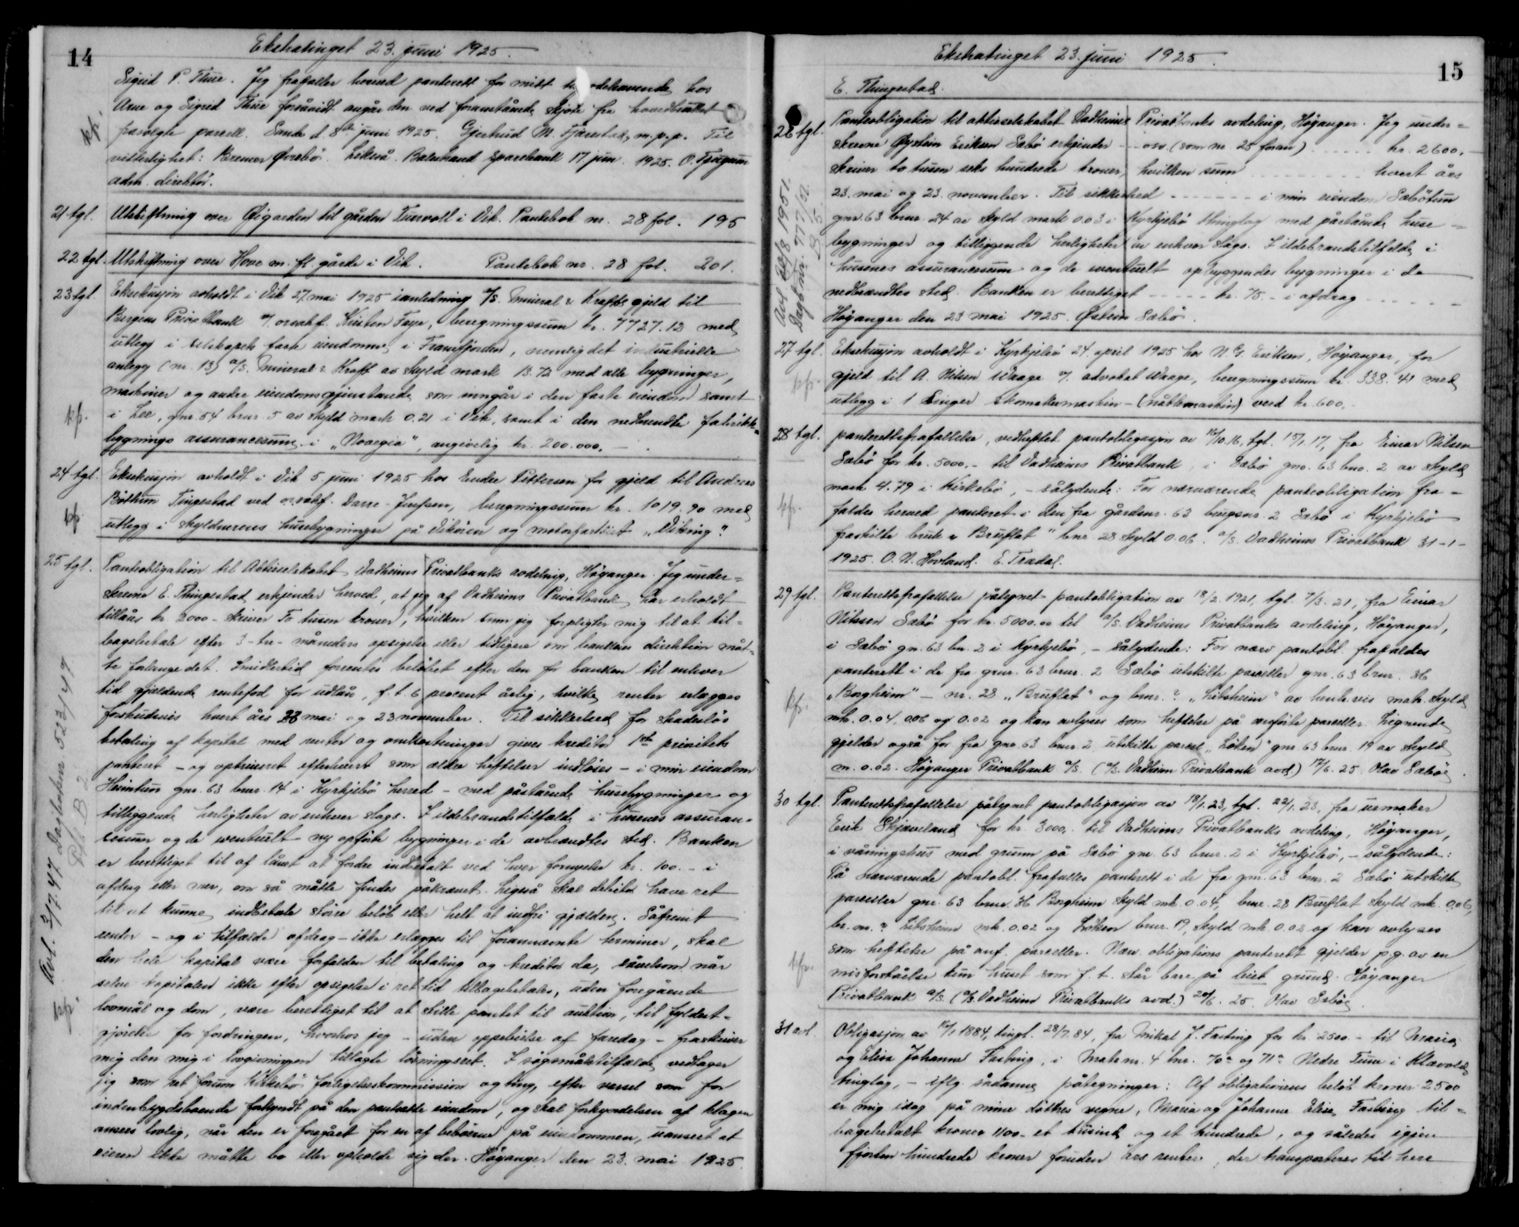 14
Ekstratinget 23. juni 1925.
Sigrid P. Thue. Jeg frafaller herved panterett for mitt tilgodehavende hos
Arne og Sigrid Thue forsåvidt angår den ved foranstående skjøte fra hovedbruket
fravolgte parcell. Sande d 8de juni 1925. Gjertrud M. m.p.p. Til
vitterlighet: Bremer Øvrebö. Leknes. Balestrand Sparebank 17 juni 1925. O.
adm. direktör.
21 tgl. Utskiftning over Øigarden til gården Turvoll i Vik. Pantebok nr. 28 fol. 195
22 tgl. Utskiftning over Hove m. fl. gårde i Vik. Pantebok nr. 28 fol. 201.
23 tgl. Eksekusjon avholdt i Vik 27 mai 1925 i anledning A/S. Mineral & Krafts gjeld til
Bergens Privatbank v/ o.r.sakf. Kirsten Faye, beregningssum kr. 7727.12 med
utlegg i selskapets faste eiendomme i Framfjorden, nemlig det industrielle
anlegg (nr. 13) A/S. Mineral & Kraft av skyld mark 13.72 med alle bygninger,
maskiner og andre eiendomsgjenstande som inngår i den faste eiendom samt
i Lee, gnr 54 bnr. 5 av skyld mark 0.21 i Vik, samt i den nedbrendte fabrikk-
bygnings assurancesum i "Noregia", angivelig kr. 200.000.
24 tgl. Eksekusjon avholdt i Vik 5 juni 1925 hos Endre Pettersen for gjeld til Andreas
Böthun Tingestad ved o.r.sakf. Darre-Jenssen, beregningssum kr. 1019.90 med
utlegg i skyldnerens husebygninger på Vikören og motorfartöiet "Viking".
25 tgl. Panteobligation til Aktieselskabet Vadheims Privatbanks avdeling, Höyanger. Jeg under-
skrevne E. Thingestad erkjender herved, at jeg af Vadheims Privatbank har erholdt
tillåns kr 2000 - skriver To tusen kroner, hvilken sum jeg forpligter mig til at til-
bagebetale efter 3 - tre - måneders opsigelse eller tidligere om bankens direktion måt-
te forlange det. Imidlertid forrentes belöbet efter den for banken til enhver
tid gjeldende rentefod for udlån, f. t. 6 procent årlig, hvilke renter erlægges
forskudsvis hvert års 23 mai og 23 november. Til sikkerhed for skadeslös
betaling af kapital med renter og omkostninger gives kreditor 1ste prioritets
panteret - og opträuret efterhvert som ældre heftelser indlöses - i min eiendom
Heimtun gnr. 63 brnr. 14 i Kyrkjebö herred - med påstående husebygninger og
tilliggende herligheter av enhver slags. I ildebrandstilfælde i husenes assuran-
cesum og de eventuelt - ny opförte bygninger i de avbrændtes sted. Banken
er berettiget til af lånet at fordre indbetalt ved hver fornyelse kr. 100. - i
afdrag eller mer, om så måtte findes påkrævet. Ligeså skal debitor have ret
til at kunne indbetale större belöb eller helt at indfri gjælden. Såfremt
renter - og i tilfælde afdrag - ikke erlægges til forannævnte terminer, skal
den hele kapital være forfalden til betaling og kreditor da, såvelsom når
selve kapitalen ikke efter opsigelse i ret tid tilbagebetales, uden foregående
lovmål og dom, være berettiget til at stille pantet til auktion, til fyldest-
gjörelse for fordringen, hvorhos jeg - uden oppebielse af faredag - fraskriver
mig den mig i lovgivningen tillagte lösningsret. I sögsmålstilfælde vedtager
jeg som ret forum Kirkebö forligelseskommission og ting, efter varsel som for
indenbygdsboende forkyndt på den pantsatte eiendom, og skal forkyndelsen af klagen
ansees lovlig, når den er foregået for en af beboerne på eiendommen, uanset at
eieren ikke måtte bo eller opholde sig der. Höyanger den 23. mai 1925
Avl. 2/7 47 Dagboknr. 523/47
Pb. B 2
15
Ekstratinget 23. juni 1925.
E. Thingestad.
26 tgl. Panteobligation til aktieselskabet Vadheims Privatbanks avdeling, Höyanger. Jeg under-
skrevne Øystein Eriksen Sæbö erkjender - osv (som nr 25 foran) kr. 2600.-
skriver to tusen seks hundrede kroner, hvilken sum hvert års
23. mai og 23. november. Til sikkerhed i min eiendom Sæbötun
gnr. 63 bnr. 24 av skyld mark 0.03 i Kyrkjebö thinglag med påstående huse-
bygninger og tilliggende herligheter av enhver slags. I ildebrandstilfælde i
husenes assurancesum og de eventuelt opbyggendes bygninger i de
nedbrændtes sted. Banken er berettiget kr. 75 - i afdrag
Höyanger den 23 mai 1925. Östein Sæbö.
Avl 1951.
Dagb.nr. 777/51.
27 tgl. Eksekusjon avholdt i Kyrkjebö 24. april 1925 hos N. G. Eriksen, Höyanger, for
gjeld til A. Nilsen Waage v/ advokat Waage, beregningssum kr 338.41 med
utlegg i 1 Singer skomakermaskin - (nåtlemaskin) verd kr. 600.
28 tgl. panterettsfrafallelse, vedheftet panteobligasjon av 16/10. 16, tgl. 15/1. 17, fra Einar Nilsen
Sæbö for kr. 5000.- til Vadheims Privatbank, i Sæbö gno. 63 bno. 2 av skyld
mark 4.79 i Kirkebö, - sålydende: For nærværende panteobligation fra-
faldes herved panteret i den fra gårdsnr. 63 brugsnr 2 Sæbö i Kyrkjebö
fraskilte bruk "Bruflat" bnr 28 skyld 0.06. A/S. Vadheims Privatbank 31-1-
1925. O. N. Hovland. E. Tradal.
29 tgl. Panterettsfrafallelse påtegnet pantobligation av 18/2 1921, tgl. 7/3. 21, fra Einar
Nilssen Sæbö for kr. 5000.00 til A/S Vadheims Privatbanks avdeling, Höyanger,
i Sæbö gn. 63 bn. 2 i Kyrkjebö, - sålydende: For nærv pantobl. frafaldes
panterett i de fra gnr. 63 bnr. 2 Sæbö utskilte parseller gnr. 63 bnr. 36
"Borgheim" - nr. 28 "Bruflat" og bnr. ? "Lekeheim" av henh.vis mark skyld
mk. 0.04, 0.06 og 0.02 og kan avlyses som heftelse på avgivte parseller. Lignende
gjelder også for fra gno. 63 bnr. 2 utskilte parsel "Löken" gnr 63 bnr. 19 av skyld
m. 0.02. Höyanger Privatbank A/S. (A/S. Vadheim Privatbank avd.) 17/6. 25. Olav Sæbö.
30 tgl. Panterettsfrafallelse påtegnet pantobligasjon av 19/1. 23, tgl. 22/1. 23, fra urmaker
Erik Skjæveland for kr. 3000. til Vadheims Privatbanks avdeling, Höyanger,
i våningshus med grunn på Sæbö gnr. 63 bnr. 2 i Kyrkjebö, - sålydende:
På nærværende pantobl. frafalles panterett i de fra gnr. 63 bnr. 2 Sæbö utskilte
parseller gnr. 63 bnr. 36 Borgheim skyld mk. 0.04, bnr. 28 Bruflat skyld mk. 0.06,
br. nr. ? Lekeheim mk. 0.02 og Löken bnr. 19, skyld mk 0.02 og kan avlyses
som heftelse på anf. parseller. Nærv. obligations panterett gjelder p.g. av en
misforståelse kun huset som f. t. står bare på leiet grunn. Höyanger
Privatbank A/S (A/S Vadheims Privatbanks avd.) 20/6. 25. Olav Sæbö.
31 avl. Obligasjon av 1884, tingl. 28/7 84, fra Mikal J. Fasting for kr. 2500 - til Maria
og Elise Johanne Fasting, i Matr.nr. 4 lnr. 70a og 71a Nedre Tuen i Klævolds
tinglag, - iflg. sådanne påtegninger: Af obligationens belöb kroner 2500
er mig idag på mine döttres vegne, Maria og Johanne Elise Fasting til-
bagebetalt kroner 1100 - et tusind og et hundrede, og således igjen
fjorten hundrede kroner foruden års renter, der transporteres til herr